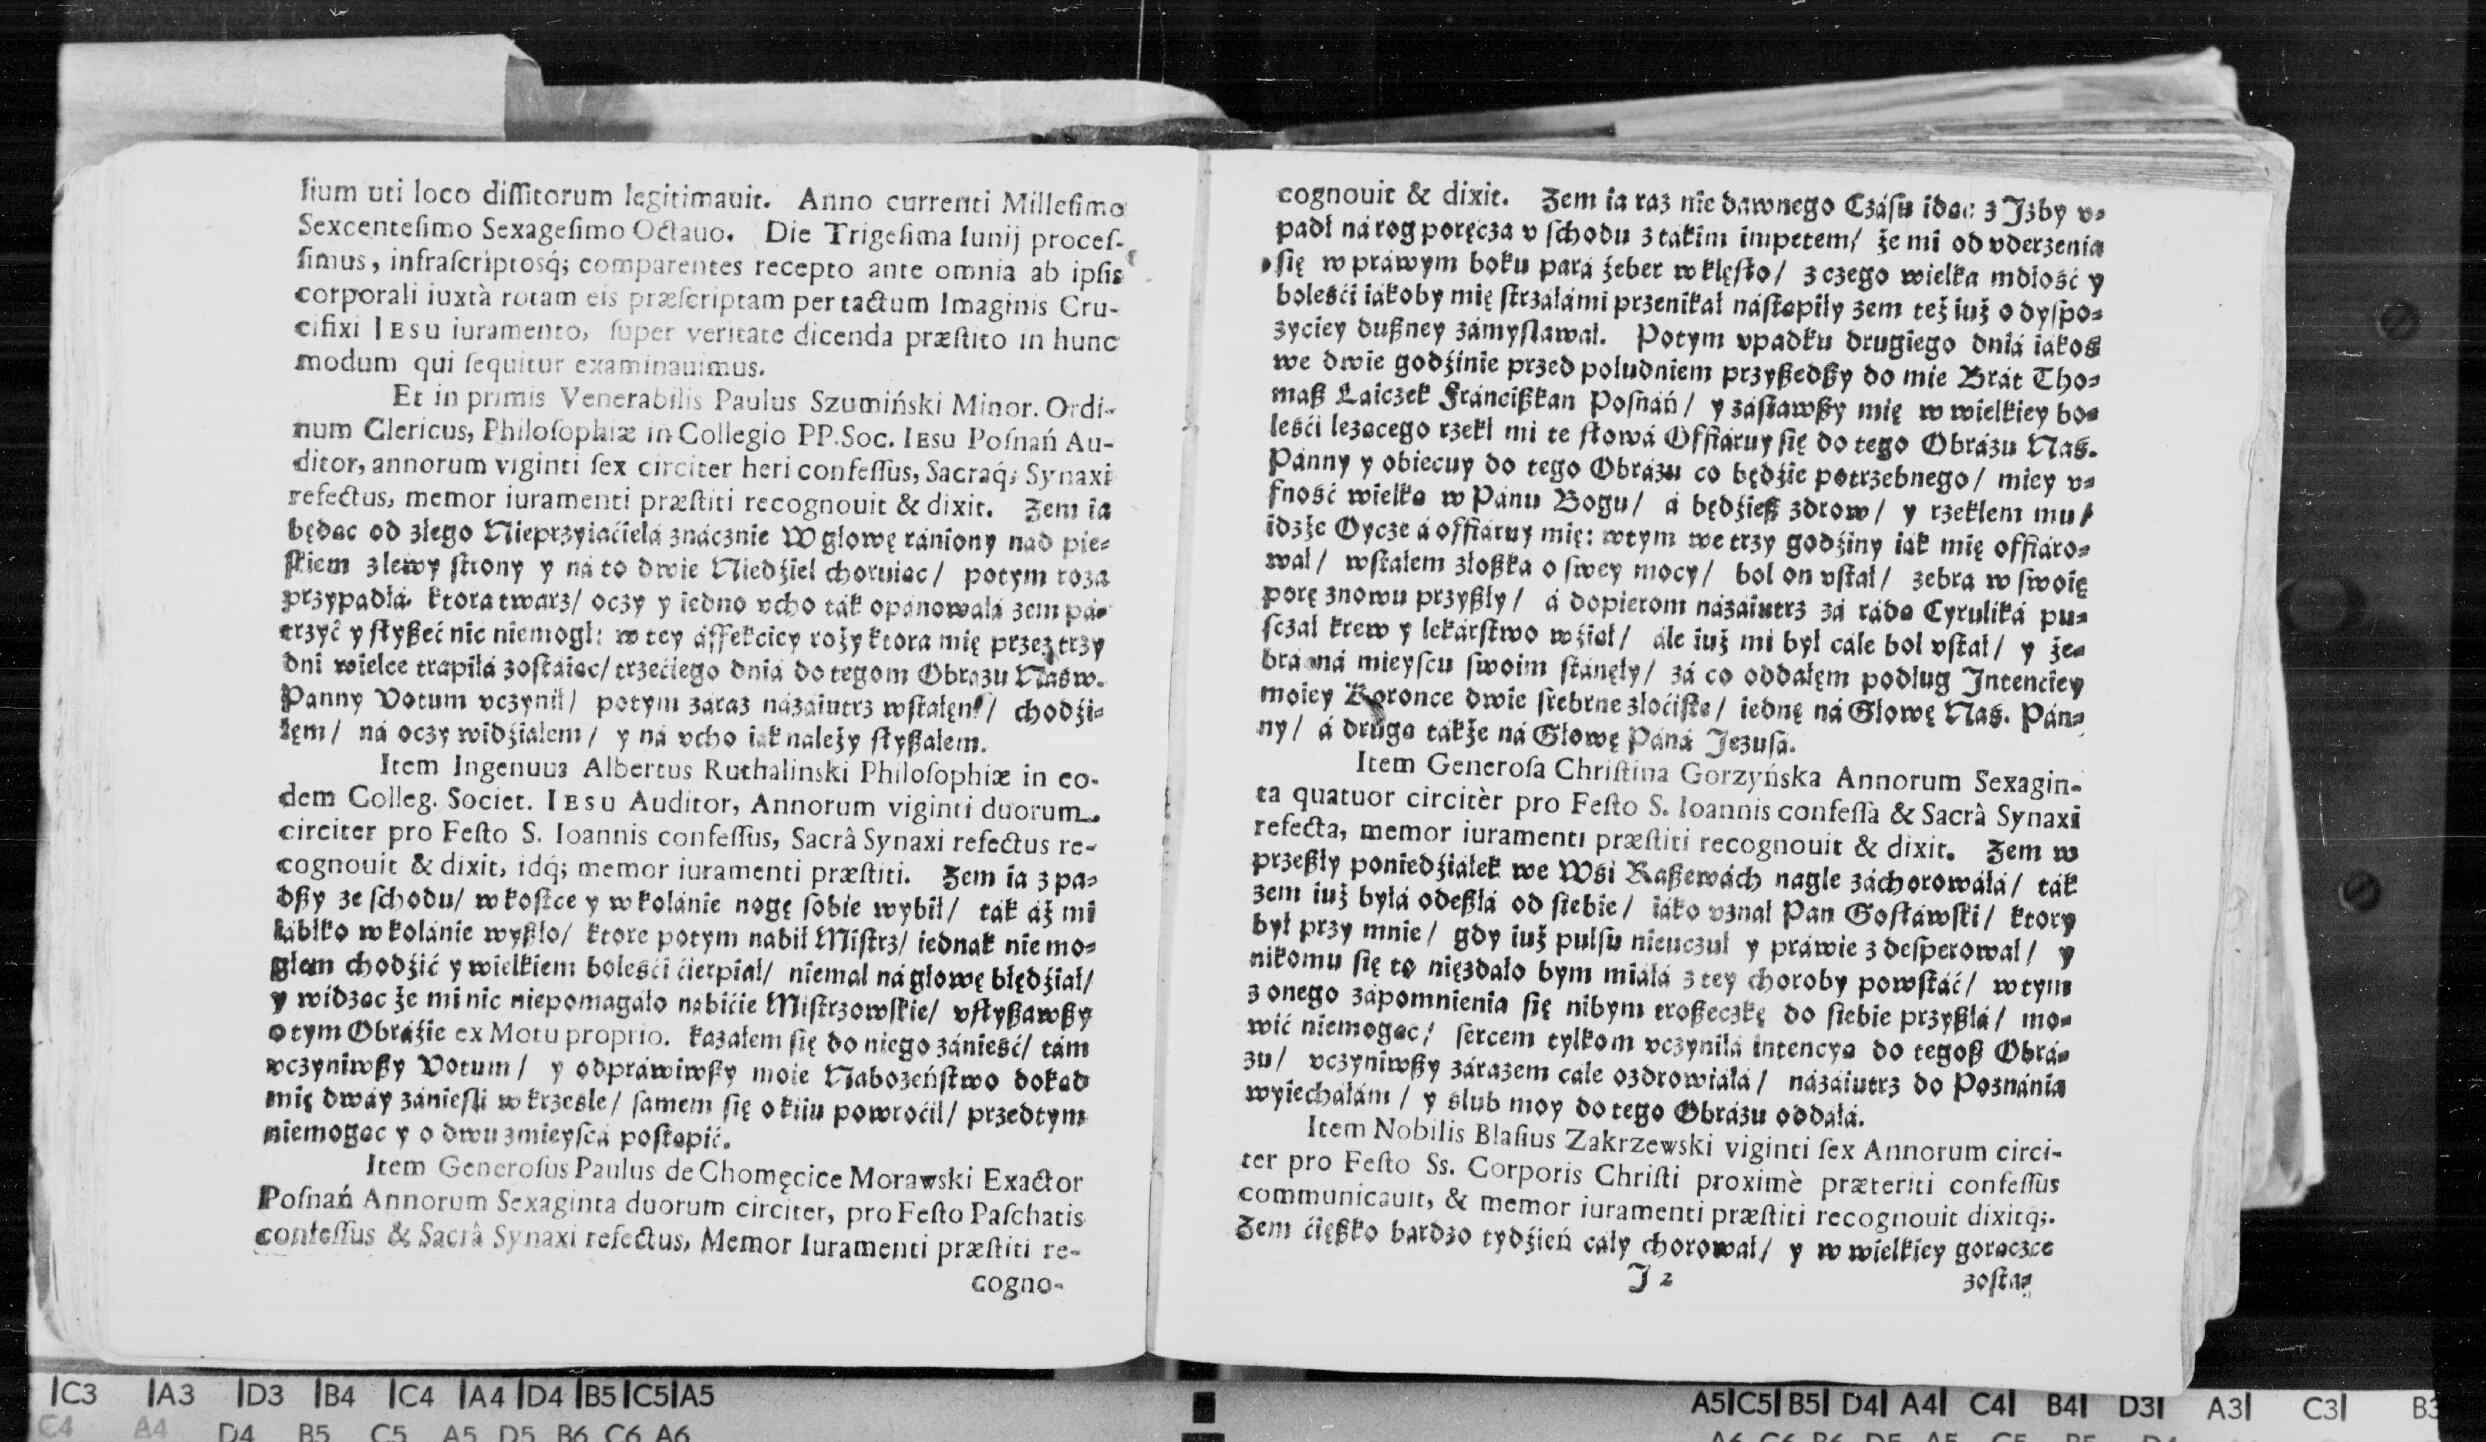 lium uti loco dissitorum legitimauit. Anno currenti Millesimo
Sexcentesimo Sexagesimo Octauo. Die Trigesima Iunij proces-
simus, infrascriptosq́; comparentes recepto ante omnia ab ipsis
corporali iuxtà rotam eis præscriptam per tactum Imaginis Cru-
cifixi IESU iuramento, super veritate dicenda præstito in hunc
modum qui sequitur examinauimus.
Et in primis Venerabilis Paulus Szumiński Minor. Ordi-
num Clericus, Philosophiæ in Collegio PP. Soc. IESU Posnań Au-
ditor, annorum viginti sex circiter heri confessus, Sacraq́; Synaxi
refectus, memor iuramenti præstiti recognouit & dixit. Zem ia
będąc od złego Nieprzyiaćielá znácznie W głowę rániony nád pie-
skiem z lewy strony y ná to dwie Niedźiel choruiąc/ potym roza
przypádłá. ktora twarz/ oczy y iedno vcho ták opánowáłá zem pá-
trzyć y słyszeć nic niemogł: w tey áffekciey roży ktora mię przez trzy
dni wielce trapiłá zostáiąc/ trzećiego dniá do tegom Obrazu Naśw.
Panny Votum vczynił/ potym záraz názáiutrz wstałęm/ chodźi-
łęm/ ná oczy widźiałem/ y ná vcho iak należy słyszałem.
Item Ingenuus Albertus Ruthalinski Philosophiæ in eo-
dem Colleg. Societ. IESU Auditor, Annorum viginti duorum
circiter pro Festo S. Ioannis confessus, Sacrâ Synaxi refectus re-
cognouit & dixit, idq́; memor iuramenti præstiti. Zem ia z pa-
dszy ze schodu/ w kostce y w kolánie nogę sobie wybił/ ták áż mi
iábłko w kolánie wyszło/ ktore potym nábił Mistrz/ iednak nie mo-
głem chodźić y wielkiem boleśći ćierpiał/ niemal ná głowę błędźiał/
y widząc że mi nic niepomagáło nábićie Mistrzowskie/ vsłyszawszy
o tym Obráźie ex Motu proprio. kazałem się do niego zánieść/ tám
vczyniwszy Votum/ y odpráwiwszy moie Nabożeństwo dokąd
mię dwáy zánieśli w krześle/ samem się o kiiu powroćił/ przedtym
niemogąc y o dwu z mieyscá postąpić.
Item Generosus Paulus de Chomęcice Morawski Exactor
Posnań Annorum Sexaginta duorum circiter, pro Festo Paschatis
confessus & Sacrâ Synaxi refectus, Memor Iuramenti præstiti re-
cogno-
cognouit & dixit. Zem ia raz nie dawnego Czásu idąc z Jzby v-
padł ná rog poręcza v schodu z takim impetem/ że mi od vderzenia
się w práwym boku pará żeber w klęsło/ z czego wielka mdłość y
boleśći iákoby mię strzałámi przenikał nástąpiły zem też iuż o dyspo-
zyciey duszney zámyslawał. Potym vpadku drugiego dniá iákoś
we dwie godźinie przed południem przyszedszy do mie Brát Tho-
masz Láiczek Fránciszkan Posnáń/ y zástawszy mię w wielkiey bo-
leśći lezącego rzekł mi te słowá Offiáruy się do tego Obrázu Naś.
Pánny y obiecuy do tego Obrázu co będźie potrzebnego/ miey v-
fność wielką w Pánu Bogu/ á będźiesz zdrow/ y rzekłem mu/
idzże Oycze á offiáruy mię: wtym we trzy godźiny iák mię offiáro-
wał/ wstałem z łoszka o swey mocy/ bol on vstał/ zebrá w swoię
porę znowu przyszły/ á dopierom názáiutrz zá rádą Cyruliká pu-
sczał krew y lekárstwo wźiął/ ále iuż mi był cále bol vstał/ y że-
brá ná mieyscu swoim stánęły/ zá co oddałęm podług Jntenciey
moiey Koronce dwie srebrne złoćiste/ iednę ná Głowę Naś. Pán-
ny/ á drugą tákże ná Głowę Páná Jezusá.
Item Generosa Christina Gorzyńska Annorum Sexagin-
ta quatuor circitèr pro Festo S. Ioannis confessa & Sacrâ Synaxi
refecta, memor iuramenti præstiti recognouit & dixit. Zem w
przeszły poniedźiałek we Wśi Raszewách nagle záchorowáłá/ ták
zem iuż byłá odeszłá od siebie/ iáko vznał Pan Gosławski/ ktory
był przy mnie/ gdy iuż pulsu nieuczuł y práwie z desperował/ y
nikomu się to nięzdało bym miáłá z tey choroby powstáć/ w tym
z onego zápomnienia się nibym troszeczkę do siebie przyszłá/ mo-
wić niemogąc/ sercem tylkom vczyniłá intencyą do tegosz Obrá-
zu/ vczyniwszy zárazem cale ozdrowiáłá/ názáiutrz do Poznánia
wyiechałám/ y slub moy do tego Obrázu oddałá.
Item Nobilis Blasius Zakrzewski viginti sex Annorum circi-
ter pro Festo Ss. Corporis Christi proximè præteriti confessus
communicauit, & memor iuramenti præstiti recognouit dixitq́;.
Zem ćięszko bardzo tydźień cáły chorował/ y w wielkiey gorączce
J 2
zosta-
C3 A3 D3 B4 C4 A4 D4 B5 C5 A5
A5 C5 B5 D4 A4 C4 B4 D3 A3 C3 B3
C4 A4 D4 B5 C5 A5 D5 B6 C6 A6